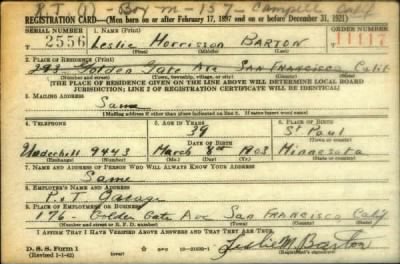 R.T. 1 Box M-157 - Campbell Calif
REGISTRATION CARD—(Men born on or after February 17, 1897 and on or before December 31, 1921)
SERIAL NUMBER 1. NAME (Print) ORDER NUMBER
2556 Leslie Morrisson BARTON
(First) (Middle) (Last)
2. PLACE OF RESIDENCE (Print)
Golden Gate Ave SAN FRANCISCO Calif
(Number and street) (Town, township, village, or city) (County) (State)
[THE PLACE OF RESIDENCE GIVEN ON THE LINE ABOVE WILL DETERMINE LOCAL BOARD
JURISDICTION; LINE 2 OF REGISTRATION CERTIFICATE WILL BE IDENTICAL]
3. MAILING ADDRESS
Same
[Mailing address if other than place indicated on line 2. If same insert word same]
4. TELEPHONE 5. AGE IN YEARS 6. PLACE OF BIRTH
39 St Paul
DATE OF BIRTH (Town or county)
Underhill 9443 March 8th 1903 Minnesota
(Exchange) (Number) (Mo.) (Day) (Yr.) (State or country)
7. NAME AND ADDRESS OF PERSON WHO WILL ALWAYS KNOW YOUR ADDRESS
Same
8. EMPLOYER'S NAME AND ADDRESS
P & T Garage
9. PLACE OF EMPLOYMENT OR BUSINESS
176 - Golden Gate Ave SAN FRANCISCO Calif
(Number and street or R. F. D. number) (Town) (County) (State)
I AFFIRM THAT I HAVE VERIFIED ABOVE ANSWERS AND THAT THEY ARE TRUE.
D. S. S. Form 1
(Revised 1-1-42) (over) Leslie M. Barton
(Registrant's signature)